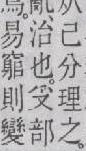 从己分理之。
亂治也。𠬪部
焉。易窮則變